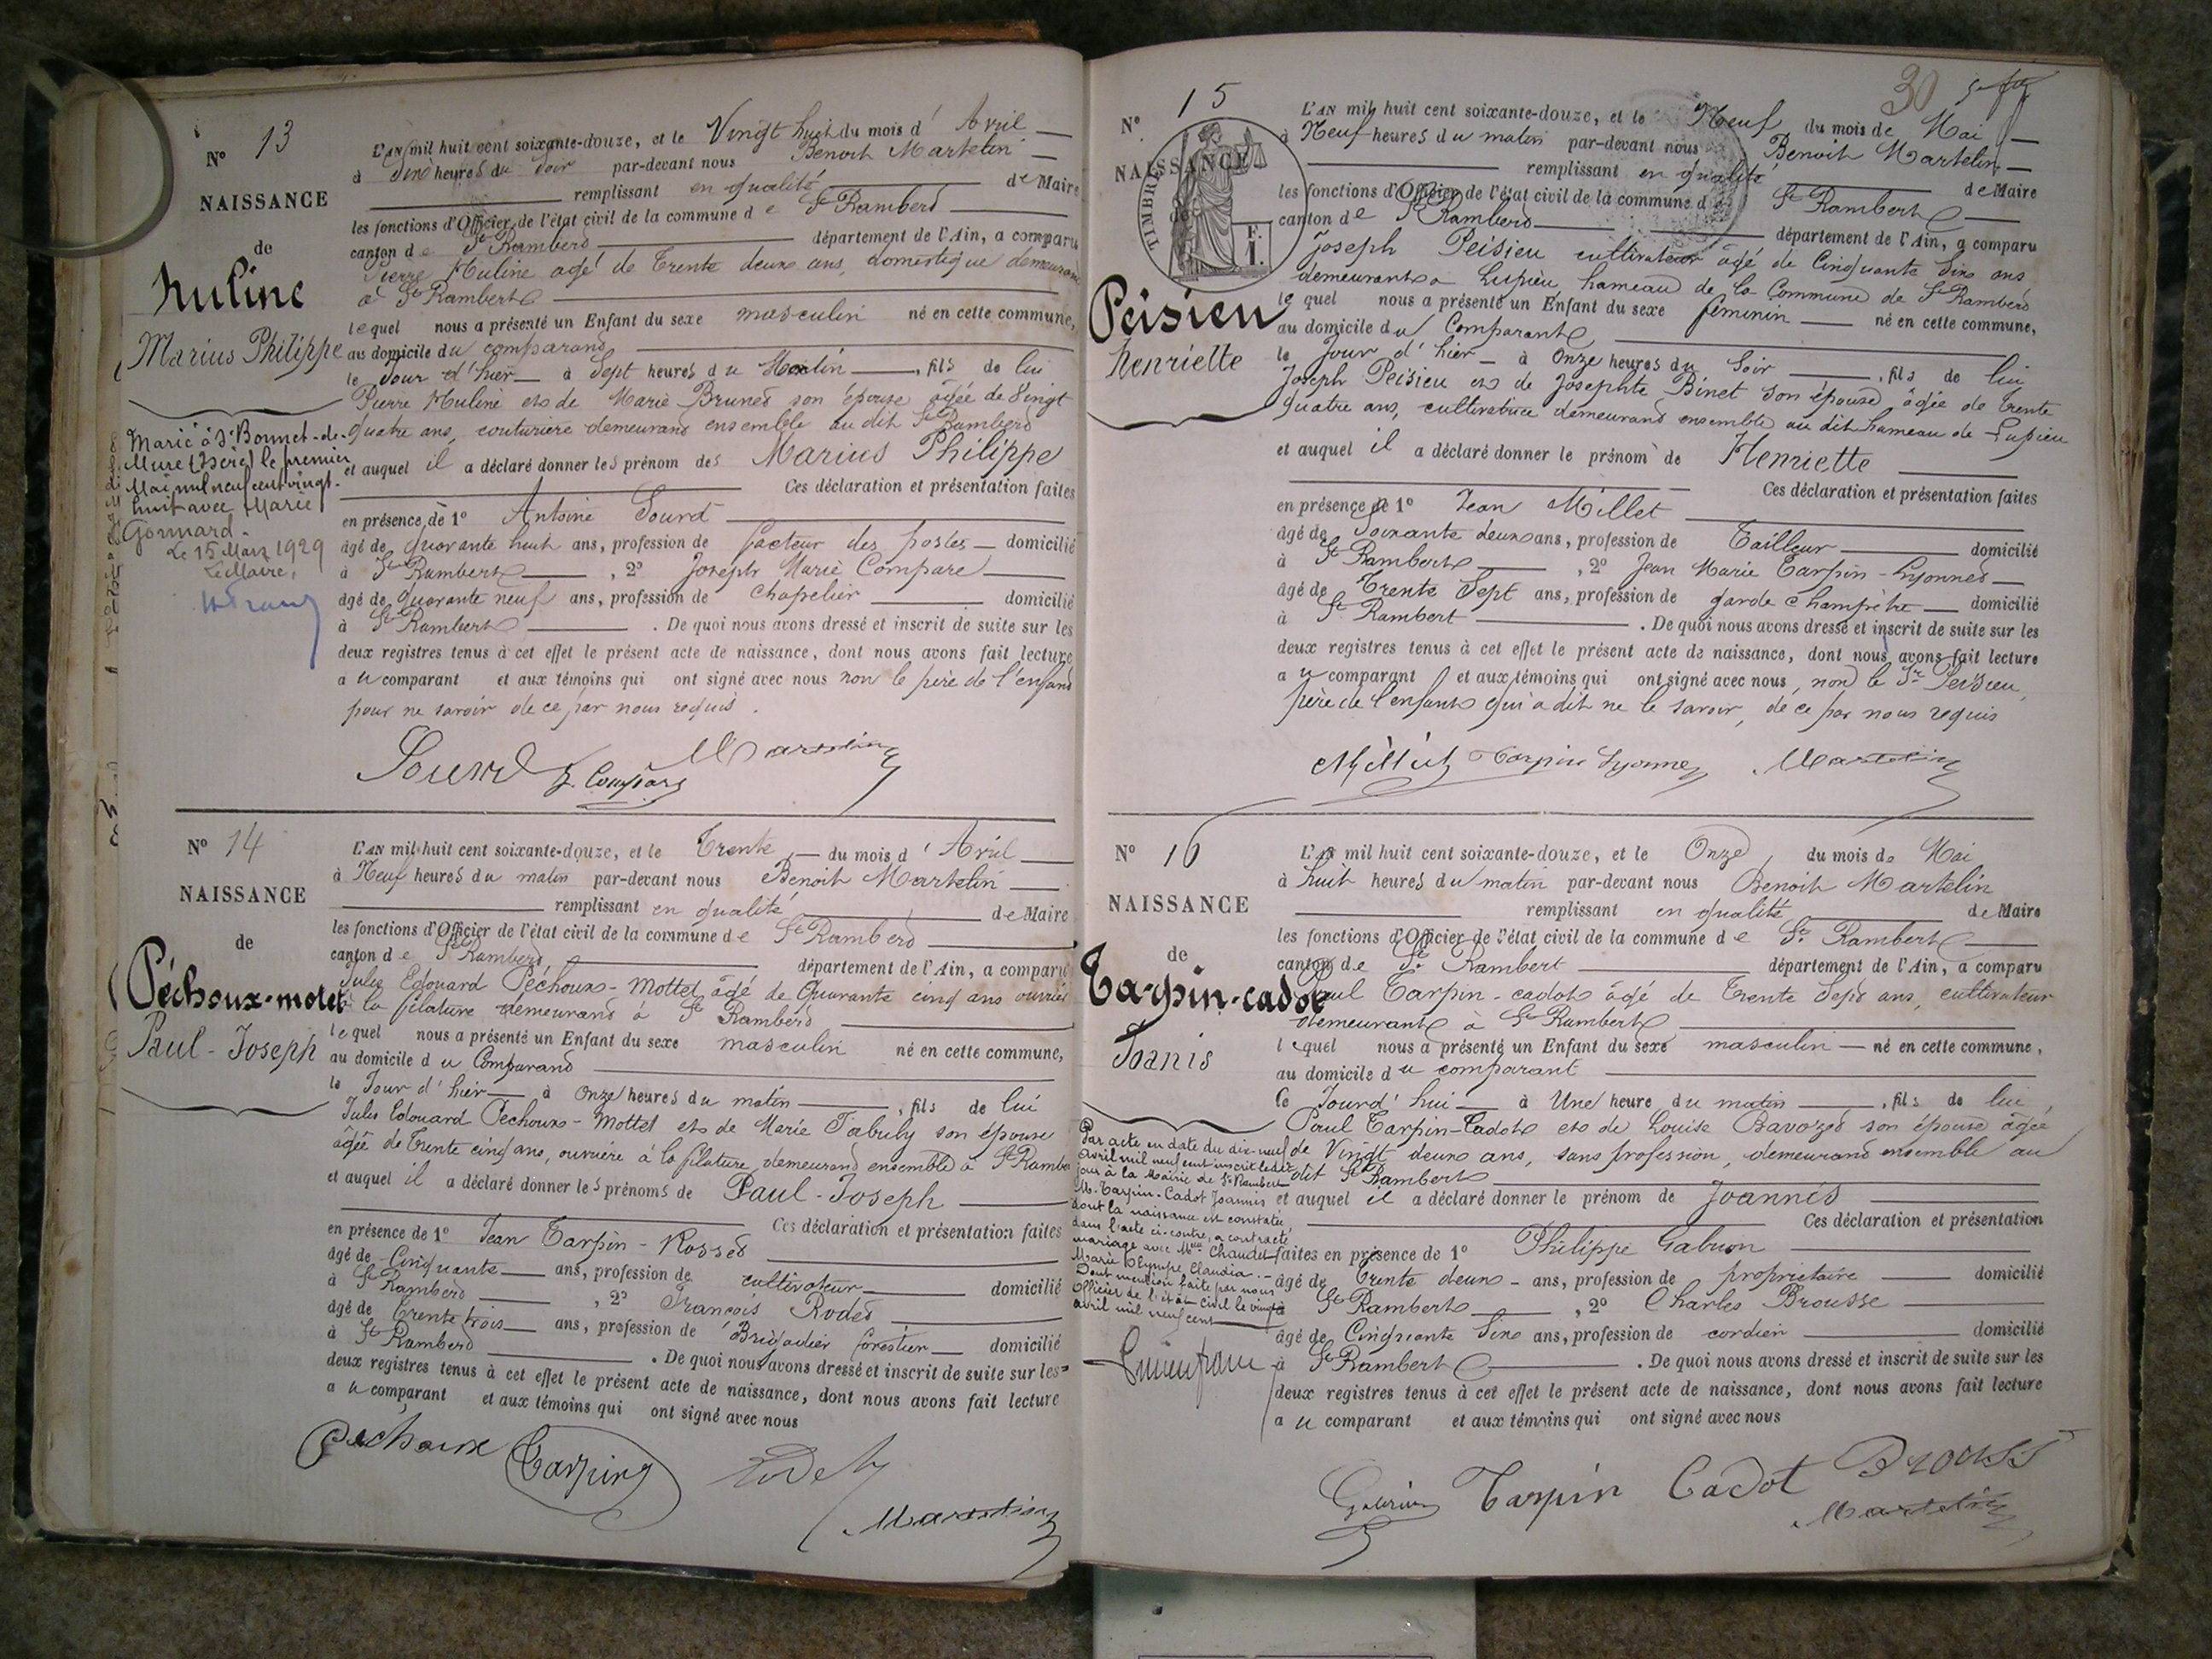 Nº 13
NAISSANCE
de
Huline
Marius Philippe
Marié à St Bonnet-de-
Mure (Isère) le premier
Mai mil neuf cent vingt-
huit avec Marie
Gonnard.
Le 15 Mars 1929
Le Maire,
L'AN mil huit cent soixante-douze, et le Vingt huit du mois d'Avril
à Six heures du Soir par-devant nous Benoit Martelin
remplissant en qualité de Maire
les fonctions d'Officier de l'état civil de la commune de St Rambert
canton de St Rambert département de l'Ain, a comparu
Pierre Huline agé de Trente deux ans, domestique demeurant
à St Rambert
lequel nous a présenté un Enfant du sexe masculin né en cette commune,
au domicile du comparant
le Jour d'hier à Sept heures du Matin, fils de lui
Pierre Huline et de Marie Brunet son épouse âgée de Vingt
quatre ans, couturière demeurant ensemble au dit St Rambert
et auquel il a déclaré donner les prénom des Marius Philippe
Ces déclaration et présentation faites
en présence de 1º Antoine Sourd
âgé de quarante huit ans, profession de facteur des postes domicilié
à St Rambert, 2º Joseph Marie Compare
âgé de quarante neuf ans, profession de chapelier domicilié
à St Rambert. De quoi nous avons dressé et inscrit de suite sur les
deux registres tenus à cet effet le présent acte de naissance, dont nous avons fait lecture
au comparant et aux témoins qui ont signé avec nous non le père de l'enfant
pour ne savoir de ce par nous requis.
Sourd J. Compare Martelin
Nº 14
NAISSANCE
de
Péchoux-motet
Paul-Joseph
L'AN mil huit cent soixante-douze, et le Trente du mois d'Avril
à Neuf heures du matin par-devant nous Benoit Martelin
remplissant en qualité de Maire
les fonctions d'Officier de l'état civil de la commune de St Rambert
canton de St Rambert, département de l'Ain, a comparu
Jules Edouard Péchoux-Mottet âgé de Quarante cinq ans ouvrier
à la filature demeurant à St Rambert
lequel nous a présenté un Enfant du sexe masculin né en cette commune,
au domicile du Comparant
le Jour d'hier à Onze heures du matin, fils de lui
Jules Edouard Péchoux-Mottet et de Marie Tabuly son épouse
âgée de Trente cinq ans, ouvrière à la filature demeurant ensemble à St Rambe
et auquel il a déclaré donner les prénoms de Paul-Joseph
Ces déclaration et présentation faites
en présence de 1º Jean Tarpin-Rosset
âgé de Cinquante ans, profession de cultivateur domicilié
à St Rambert, 2º François Rodet
âgé de trente trois ans, profession de Brigadier forestier domicilié
à St Rambert. De quoi nous avons dressé et inscrit de suite sur les
deux registres tenus à cet effet le présent acte de naissance, dont nous avons fait lecture
au comparant et aux témoins qui ont signé avec nous
Péchoux Tarpin Rodet
Martelin
30
Nº 15
NAISSANCE
TIMBRE
F.
1.
Peisieu
henriette
L'AN mil huit cent soixante-douze, et le Neuf du mois de Mai
à Neuf heures du matin par-devant nous Benoit Martelin
remplissant en qualité de Maire
les fonctions d'Officier de l'état civil de la commune de St Rambert
canton de St Rambert département de l'Ain, a comparu
Joseph Peisieu cultivateur âgé de Cinquante Six ans
demeurant à Lupieu hameau de la Commune de St Rambert
lequel nous a présenté un Enfant du sexe féminin né en cette commune,
au domicile du Comparant
le Jour d'hier à Onze heures du Soir, fils de lui
Joseph Peisieu et de Josephte Binet son épouse âgée de trente
quatre ans, cultivatrice demeurant ensemble au dit hameau de Lupieu
et auquel il a déclaré donner le prénom de Henriette
Ces déclaration et présentation faites
en présence de 1º Jean Millet
âgé de Soixante deux ans, profession de Tailleur domicilié
à St Rambert, 2º Jean Marie Tarpin-Lyonnet
âgé de Trente Sept ans, profession de garde champêtre domicilié
à St Rambert. De quoi nous avons dressé et inscrit de suite sur les
deux registres tenus à cet effet le présent acte de naissance, dont nous avons fait lecture
au comparant et aux témoins qui ont signé avec nous, non le Sr Peisieu,
père de l'enfant qui a dit ne le savoir, de ce par nous requis
Millet Tarpin Lyonnet Martelin
Nº 16
NAISSANCE
de
Tarpin-cadot
Joanis
Par acte en date du dix-neuf
avril mil neuf cent inscrit ledit
jour à la Mairie de St Rambert
M. Tarpin-Cadot Joannis
dont la naissance est constatée
dans l'acte ci-contre, a contracté
mariage avec Mlle Chaudet
Marie Olympe Claudia.-
Dont mention faite par nous
Officier de l'état-civil le vingt
avril mil neuf cent
L'AN mil huit cent soixante-douze, et le Onze du mois de Mai
à huit heures du matin par-devant nous Benoit Martelin
remplissant en qualité de Maire
les fonctions d'Officier de l'état civil de la commune de St Rambert
canton de St Rambert département de l'Ain, a comparu
Paul Tarpin-cadot âgé de Trente Sept ans, cultivateur
demeurant à St Rambert
lequel nous a présenté un Enfant du sexe masculin né en cette commune,
au domicile du comparant
le Jourd'hui à Une heure du matin, fils de lui
Paul Tarpin-Cadot et de Louise Bavozet son épouse âgée
de Vingt deux ans, sans profession, demeurant ensemble au
dit St Rambert
et auquel il a déclaré donner le prénom de Joannès
Ces déclaration et présentation
faites en présence de 1º Philippe Gabrion
âgé de Trente deux ans, profession de propriétaire domicilié
à St Rambert, 2º Charles Brousse
âgé de Cinquante Six ans, profession de cordier domicilié
à St Rambert. De quoi nous avons dressé et inscrit de suite sur les
deux registres tenus à cet effet le présent acte de naissance, dont nous avons fait lecture
au comparant et aux témoins qui ont signé avec nous
Tarpin Cadot Brousse
Martelin